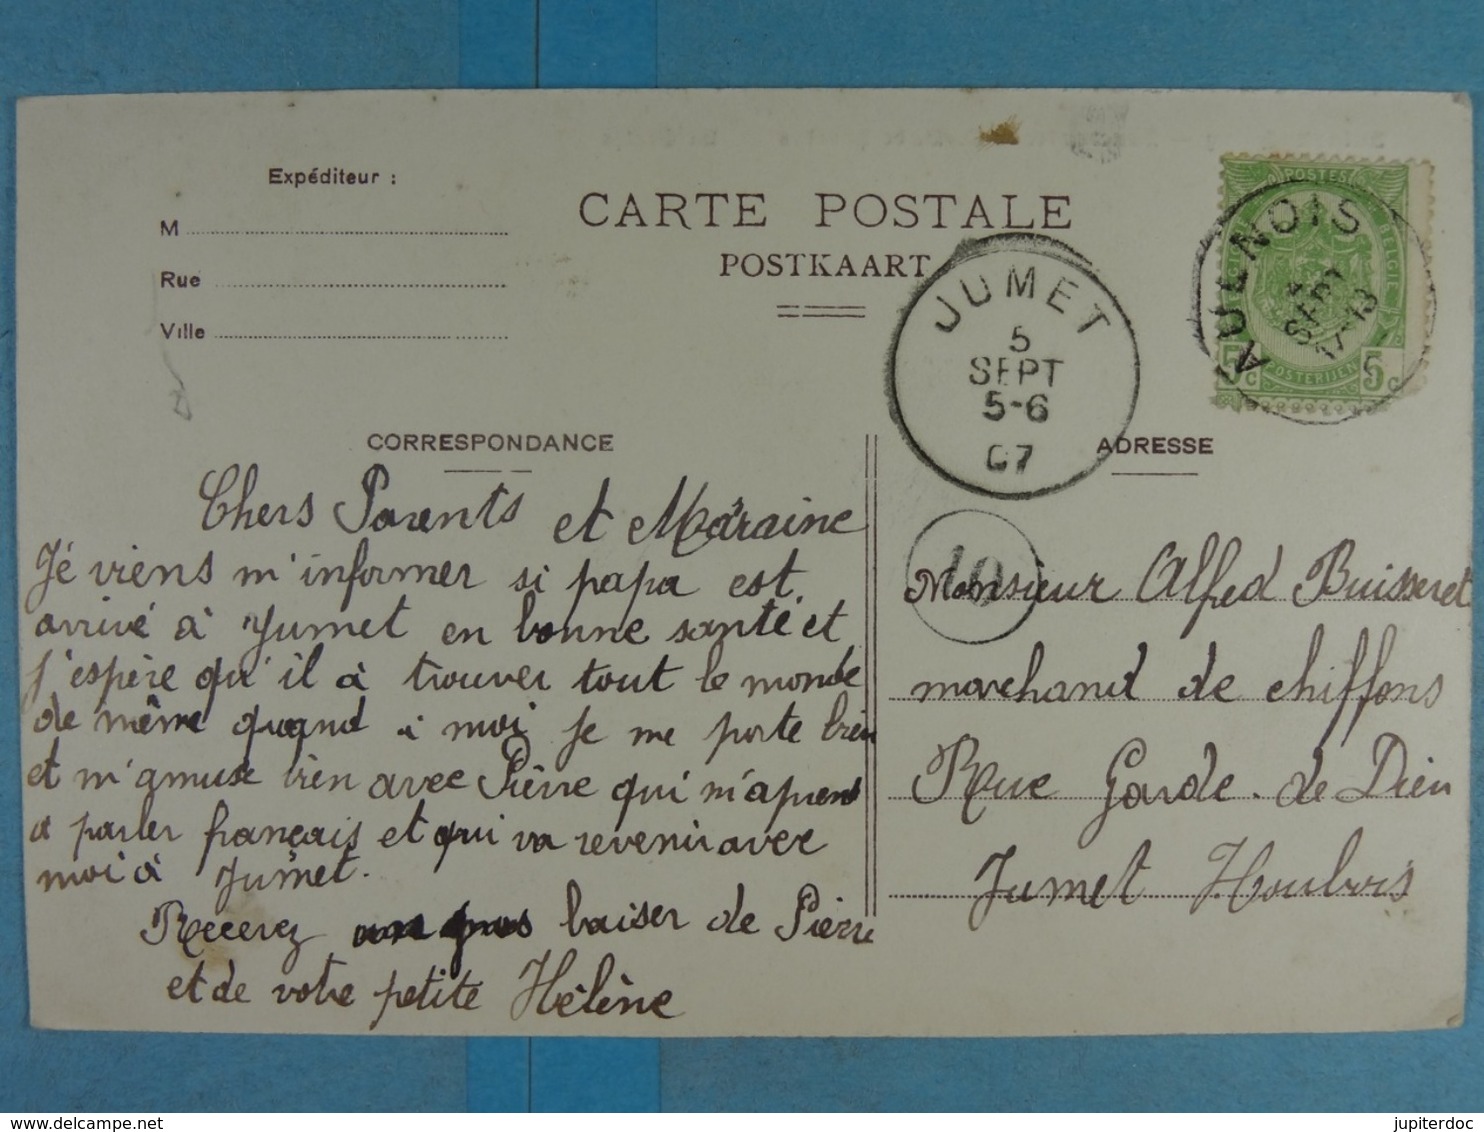 Expéditeur :
M
Rue
Ville
CARTE POSTALE
POSTKAART
JUMET
5
SEPT
5-6
07
AULNOIS
SEPT
POSTES
BELGIE
POSTERIJEN
5c
5c
10
CORRESPONDANCE
ADRESSE
Chers Parents et Maraine
Jé viens m'informer si papa est
arrivé à Jumet en bonne santé et
j'espère qu'il à trouver tout le monde
de même quand à moi je me porte bien
et m'amuse bien avec Pièrre qui m'aprend
a parler français et qui va revenir avec
moi à Jumet.
Recevez un gros baiser de Pièrre
et de votre petite Hélène
Monsieur Alfed Buisseret
marchand de chiffons
Rue Garde de Dieu
Jumet Houbois
jupiterdoc